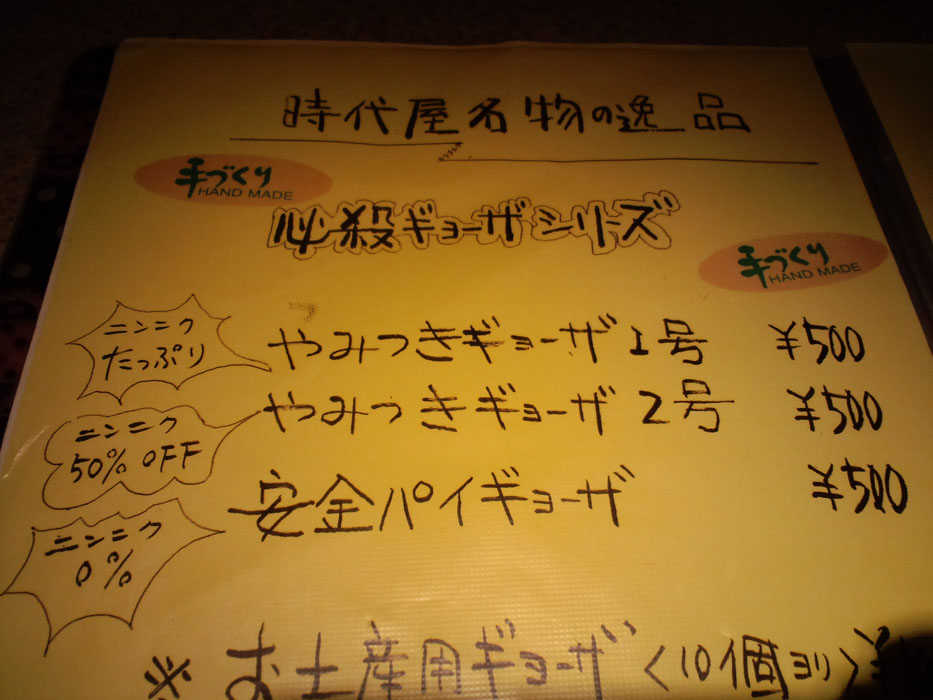 時代屋名物の逸品
手づくり
HAND MADE
必殺ギョーザシリーズ
手づくり
HAND MADE
ニンニク
たっぷり
やみつきギョーザ1号 ¥500
ニンニク
50% OFF
やみつきギョーザ2号 ¥500
安全パイギョーザ ¥500
ニンニク
0%
※お土産用ギョーザ〈10個ヨリ〉